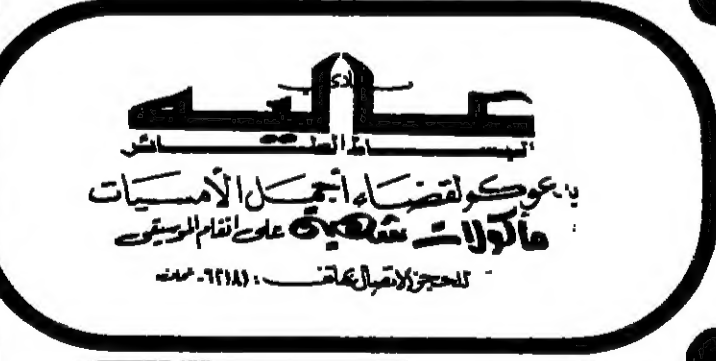 نادي
عاليه
البساط الطائر
يدعوكم لقضاء أجمل الأمسيات
مأكولات شهية على انغام الموسيقى
للحجز الاتصال بهاتف: ٦٢١٨١ - عمان